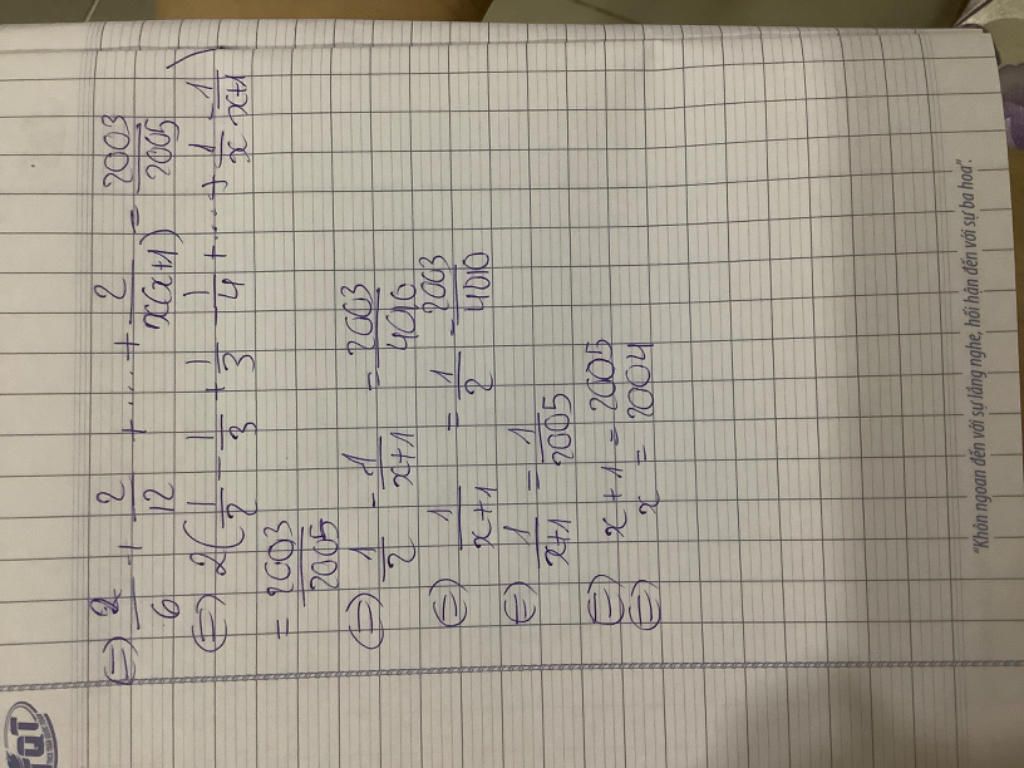 (=) 2/6 + 2/12 + ... + 2/x(x+1) = 2003/2005
(=) 2(1/2 - 1/3 + 1/3 - 1/4 + ... + 1/x - 1/x+1)
= 2003/2005
(=) 1/2 - 1/x+1 = 2003/4016
(=) 1/x+1 = 1/2 - 2003/4010
(=) 1/x+1 = 1/2005
(=) x+1 = 2005
(=) x = 2004
"Khôn ngoan đến với sự lắng nghe, hối hận đến với sự ba hoa".